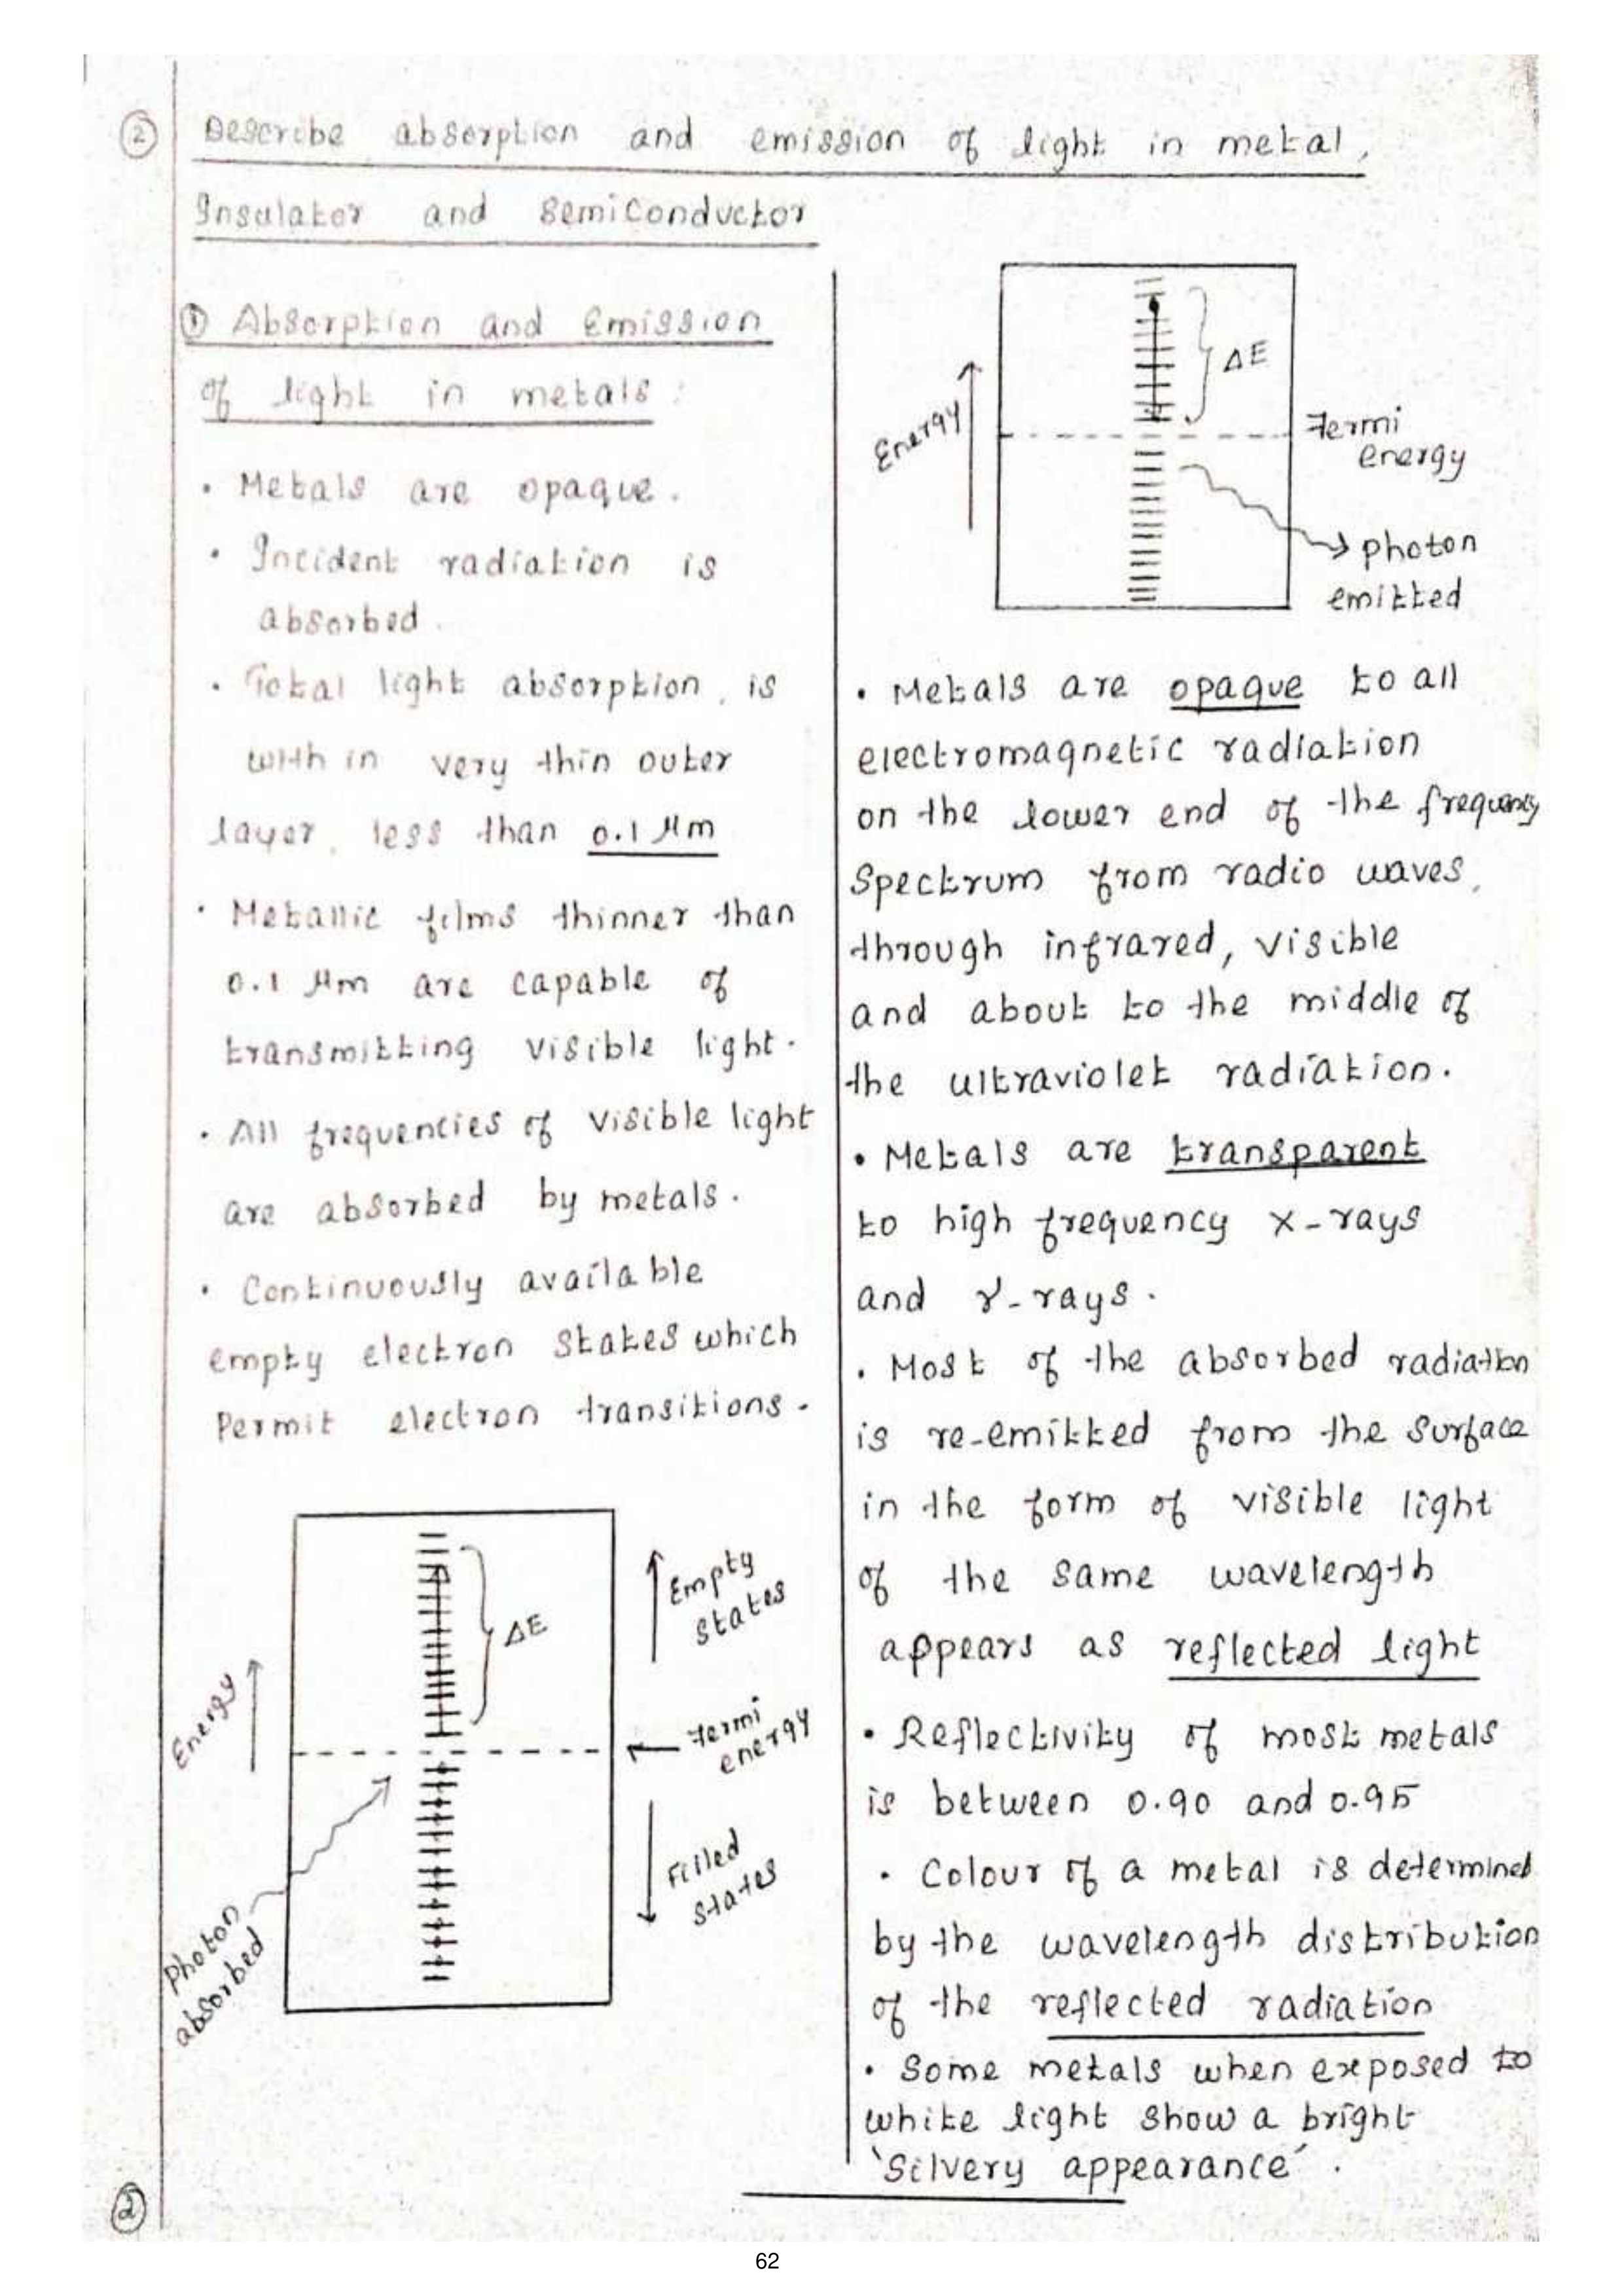 ② Describe absorption and emission of light in metal,
Insulator and semiconductor
① Absorption and Emission
of light in metals :
• Metals are opaque.
• Incident radiation is
absorbed.
• Total light absorption, is
with in very thin outer
layer, less than 0.1 μm
• Metallic films thinner than
0.1 μm are capable of
transmitting visible light.
• All frequencies of visible light
are absorbed by metals.
• Continuously available
empty electron states which
Permit electron transitions.
Energy
ΔE
Empty
states
Fermi
energy
Filled
states
Photon
absorbed
Energy
ΔE
Fermi
energy
photon
emitted
• Metals are opaque to all
electromagnetic radiation
on the lower end of the frequency
Spectrum from radio waves,
through infrared, visible
and about to the middle of
the ultraviolet radiation.
• Metals are transparent
to high frequency x-rays
and γ-rays.
• Most of the absorbed radiation
is re-emitted from the surface
in the form of visible light
of the same wavelength
appears as reflected light
• Reflectivity of most metals
is between 0.90 and 0.95
• Colour of a metal is determined
by the wavelength distribution
of the reflected radiation
• Some metals when exposed to
white light show a bright
'Silvery appearance'.
②
62